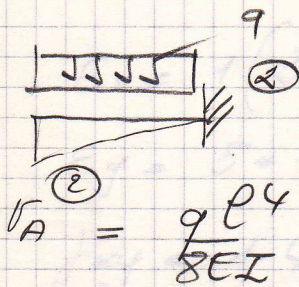 q
②
②
v_A = qℓ⁴/8EI